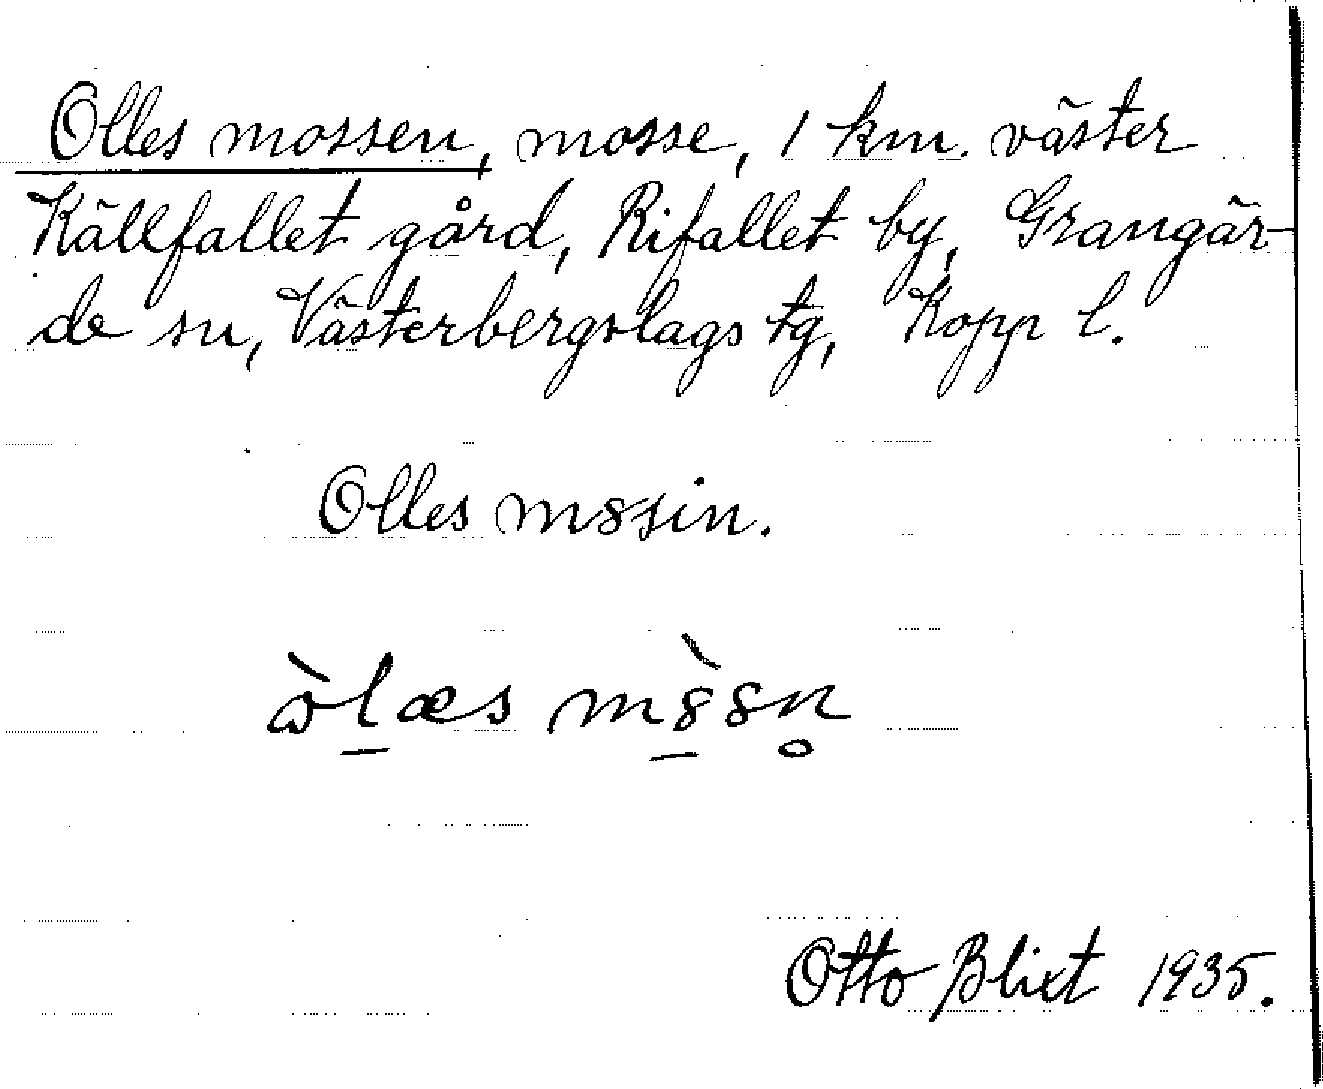 Olles mossen, mosse, 1 km. väster
Källfallet gård, Rifallet by, Grangär-
de sn, Västerbergslags tg, Kopp l.
Olles m8sin.
ò̤l̲æs m8̲̀sn̥
Otto Blixt 1935.